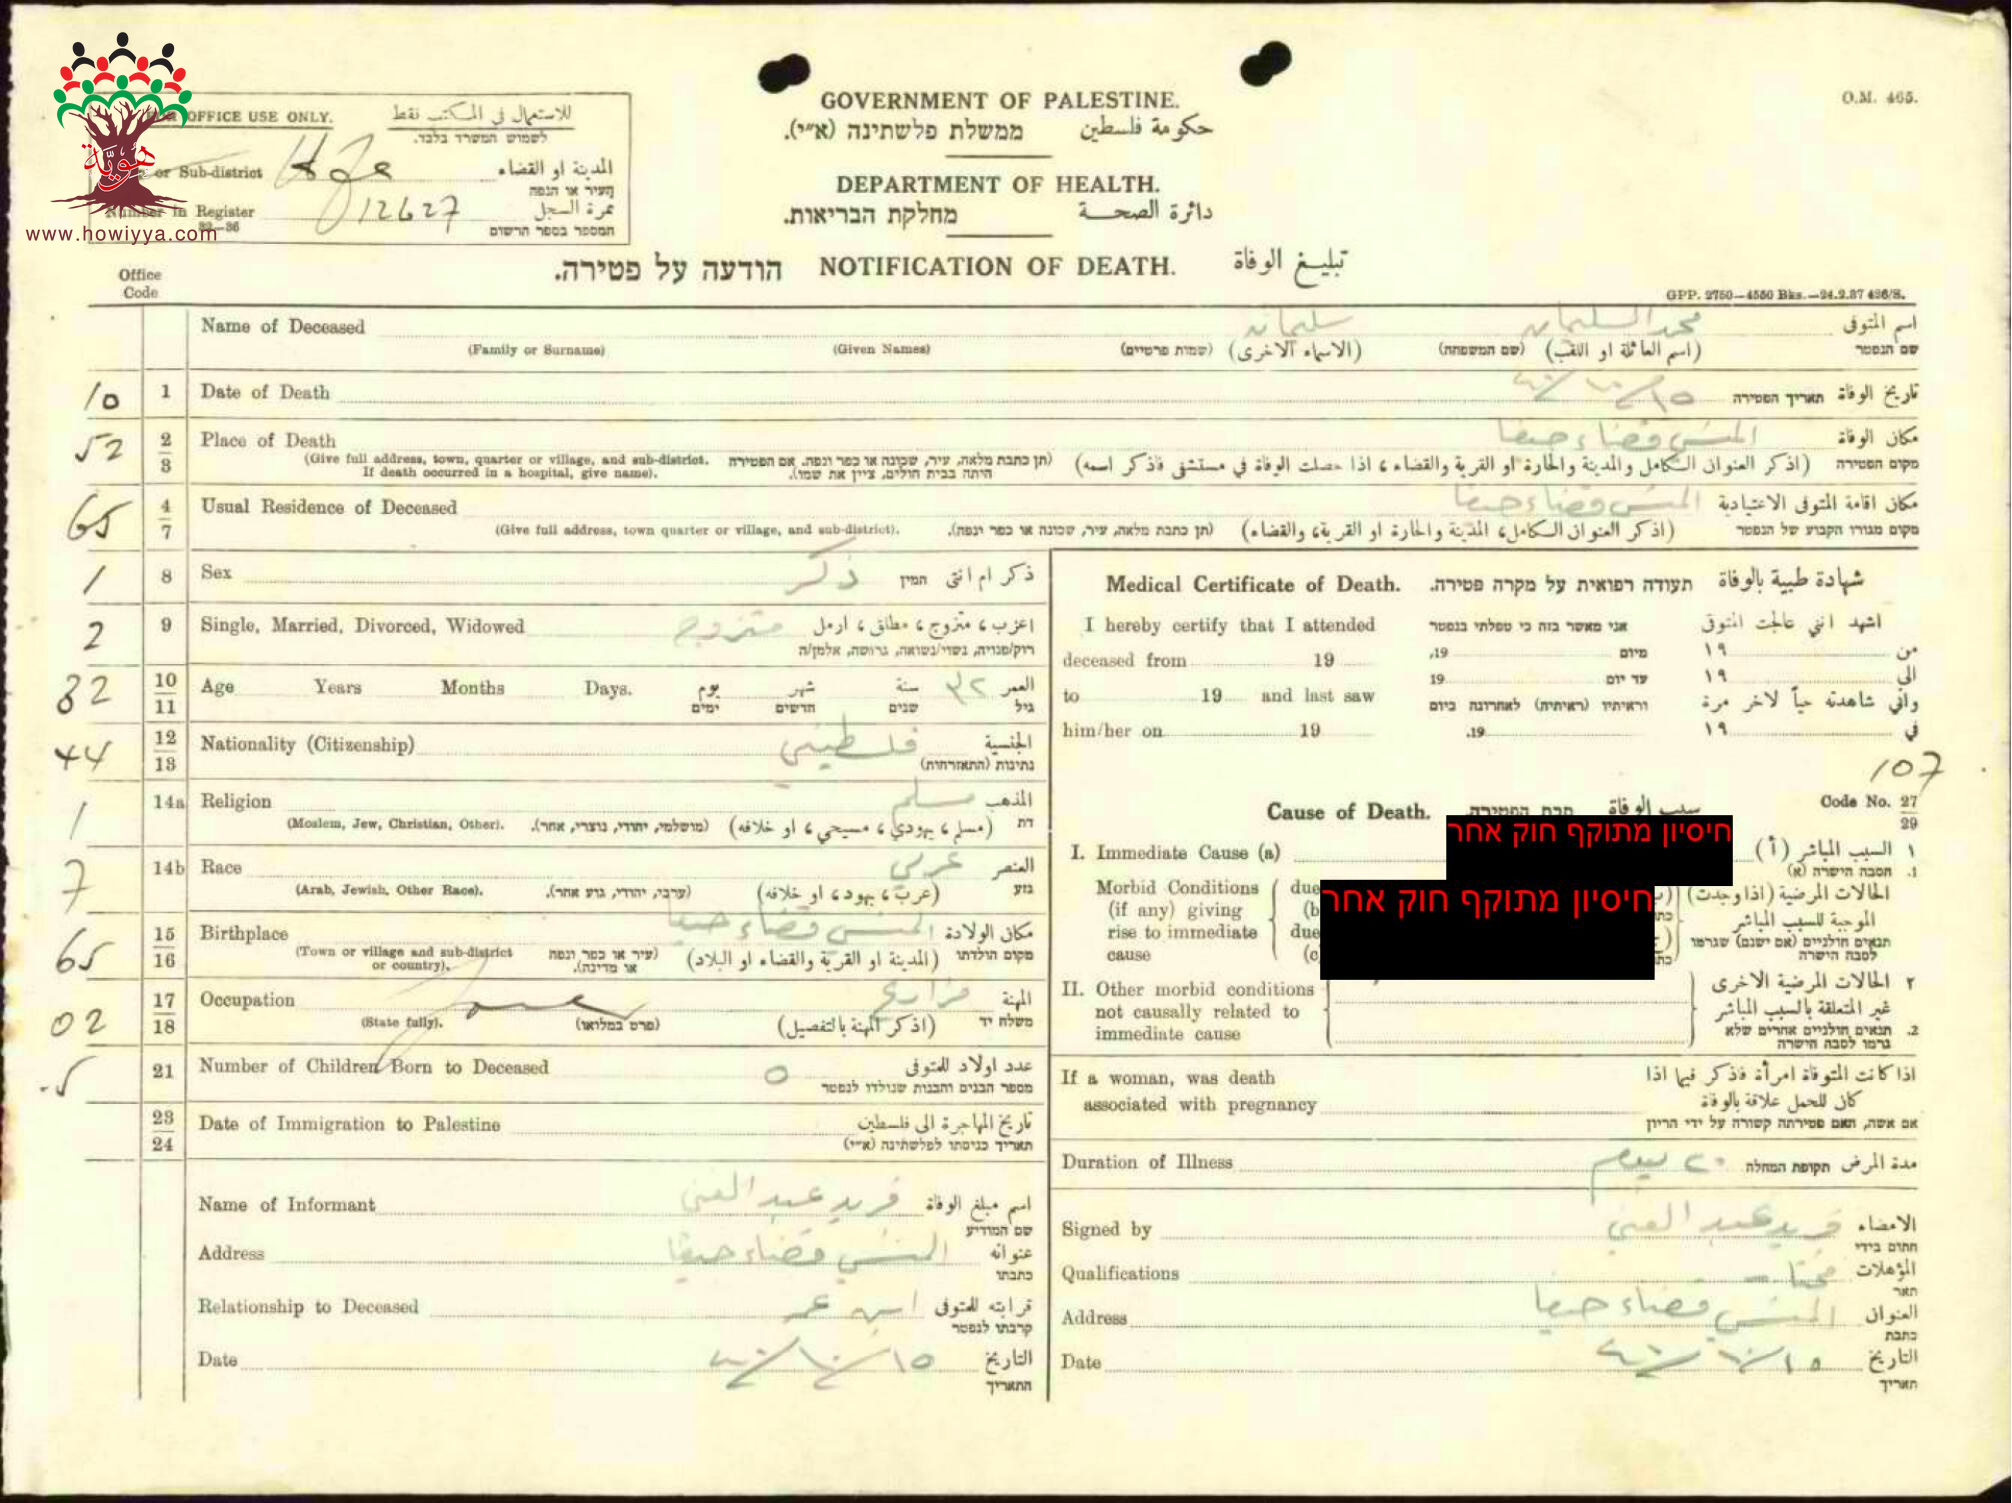 هوية
www.howiyya.com
FOR OFFICE USE ONLY. للاستعمال في المكتب فقط
לשמוש המשרד בלבד.
or Sub-district المدينة او القضاء
העיר או הנפה
Number in Register 12627 نمرة السجل
32—36 המספר בספר הרשום
O.M. 465.
GOVERNMENT OF PALESTINE.
ממשלת פלשתינה (א״י). حكومة فلسطين
DEPARTMENT OF HEALTH.
מחלקת הבריאות. دائرة الصحة
הודעה על פטירה. NOTIFICATION OF DEATH. تبليغ الوفاة
Office
Code
GPP. 2750—4550 Bks.—24.2.37 436/S.
Name of Deceased سليمان محمد السليمان اسم المتوفى
(Family or Surname) (Given Names) (שמות פרטיים) (الاسماء الاخرى) (שם המשפחה) (اسم العائلة او اللقب) שם הנפטר
10 1 Date of Death תאריך הפטירה تاريخ الوفاة
52 2 3 Place of Death المنسي قضاء حيفا مكان الوفاة
(Give full address, town, quarter or village, and sub-district. If death occurred in a hospital, give name).
(תן כתבת מלאה, עיר, שכונה או כפר ונפה. אם הפטירה היתה בבית חולים, ציין את שמו).
(اذكر العنوان الكامل والمدينة والحارة او القرية والقضاء، اذا حصلت الوفاة في مستشفى فاذكر اسمه) מקום הפטירה
65 4 7 Usual Residence of Deceased المنسي قضاء حيفا مكان اقامة المتوفى الاعتيادية
(Give full address, town quarter or village, and sub-district). (תן כתבת מלאה, עיר, שכונה או כפר ונפה). (اذكر العنوان الكامل، المدينة والحارة او القرية، والقضاء) מקום מגורו הקבוע של הנפטר
1 8 Sex ذكر המין ذكر ام انثى
2 9 Single, Married, Divorced, Widowed متزوج اعزب، متزوج، مطلق، ارمل
רוק/פנויה, נשוי/נשואה, גרושה, אלמן/ה
32 10 11 Age Years Months Days. يوم شهر سنة ٣٢ العمر
ימים חדשים שנים גיל
44 12 13 Nationality (Citizenship) فلسطيني الجنسية
נתינות (התאזרחות)
1 14a Religion مسلم المذهب
(Moslem, Jew, Christian, Other). (מושלמי, יהודי, נוצרי, אחר). (مسلم، يهودي، مسيحي، او خلافه) דת
7 14b Race عربي العنصر
(Arab, Jewish, Other Race). (ערבי, יהודי, גזע אחר). (عرب، يهود، او خلافه) גזע
65 15 16 Birthplace المنسي قضاء حيفا مكان الولادة
(Town or village and sub-district or country). (עיר או כפר ונפה או מדינה). (المدينة او القرية والقضاء او البلاد) מקום הולדתו
02 17 18 Occupation مزارع المهنة
(State fully). (פרט במלואו) (اذكر المهنة بالتفصيل) משלח יד
5 21 Number of Children Born to Deceased ٥ عدد اولاد المتوفى
מספר הבנים והבנות שנולדו לנפטר
23 24 Date of Immigration to Palestine تاريخ المهاجرة الى فلسطين
תאריך כניסתו לפלשתינה (א״י)
Name of Informant فريد عبد الغني اسم مبلغ الوفاة
שם המודיע
Address المنسي قضاء حيفا عنوانه
כתבתו
Relationship to Deceased ابن عم قرابته للمتوفى
קרבתו לנפטר
Date التاريخ
התאריך
Medical Certificate of Death. תעודה רפואית על מקרה פטירה. شهادة طبية بالوفاة
I hereby certify that I attended אני מאשר בזה כי טפלתי בנפטר اشهد انني عالجت المتوفى
deceased from 19 19, מיום ١٩ من
to 19 and last saw 19 עד יום ١٩ الى
וראיתיו (ראיתיה) לאחרונה ביום واني شاهدته حياً لاخر مرة
him/her on 19 19. ١٩ في
107
Cause of Death. סבת הפטירה. سبب الوفاة Code No. 27 29
חיסיון מתוקף חוק אחר
I. Immediate Cause (a) ١ السبب المباشر (أ)
1. הסבה הישרה (א)
חיסיון מתוקף חוק אחר
Morbid Conditions due الحالات المرضية (اذا وجدت)
(if any) giving (b الموجبة للسبب المباشر
rise to immediate due תנאים חולניים (אם ישנם) שגרמו
cause (c לסבה הישרה
II. Other morbid conditions ٢ الحالات المرضية الاخرى
not causally related to غير المتعلقة بالسبب المباشر
immediate cause 2. תנאים חולניים אחרים שלא
גרמו לסבה הישרה
If a woman, was death اذا كانت المتوفاة امرأة فاذكر فيما اذا
associated with pregnancy كان للحمل علاقة بالوفاة
אם אשה, האם פטירתה קשורה על ידי הריון
Duration of Illness ٢٠ يوم תקופת המחלה مدة المرض
Signed by فريد عبد الغني الامضاء
חתום בידי
Qualifications مختار المؤهلات
תאר
Address المنسي قضاء حيفا العنوان
כתבת
Date التاريخ
תאריך